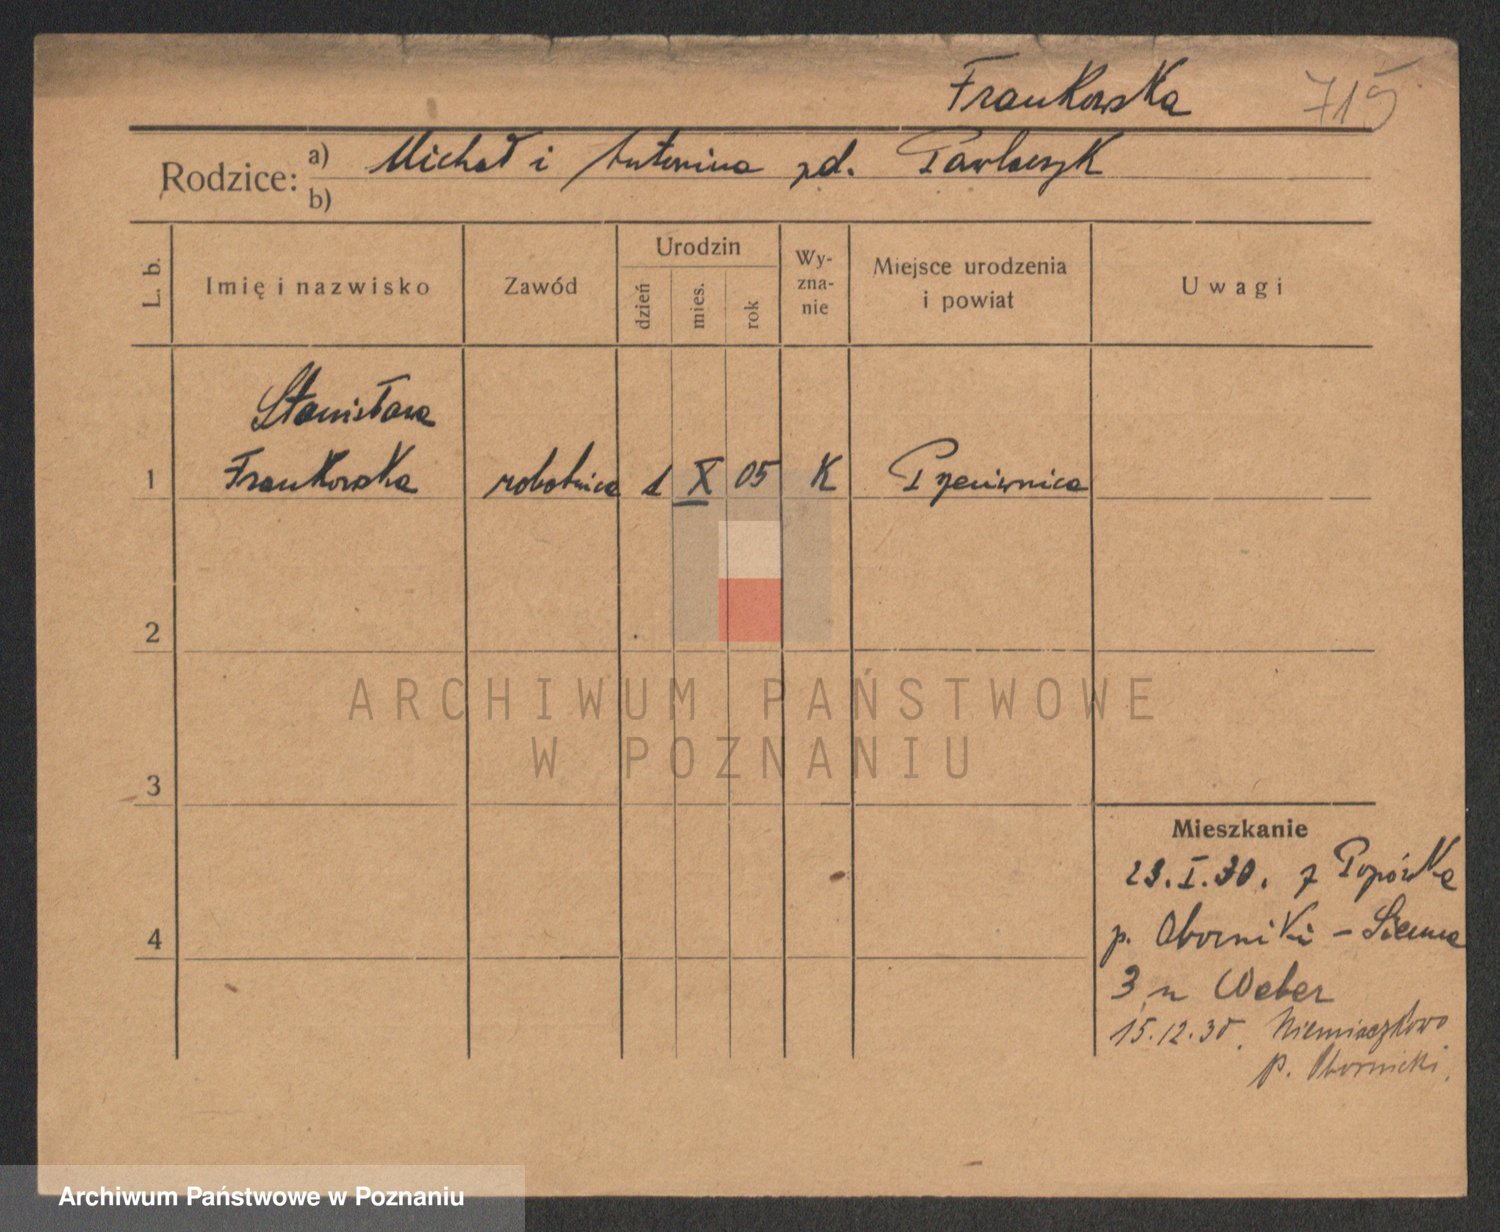 Frankowska 715
Rodzice: a) Michał i Antonina zd. Pawlaczyk
b)
L. b. Imię i nazwisko Zawód Urodzin dzień mies. rok Wy-zna-nie Miejsce urodzenia i powiat Uwagi
Stanisława
1 Frankowska robotnica 1 X 05 K
2
3
4
Mieszkanie
23.I.30. z Popówka
p. Oborniki - Sienna
3 u Weber
15.12.30. Niemieczkowo
p. Obornicki.
ARCHIWUM PAŃSTWOWE
W POZNANIU
Archiwum Państwowe w Poznaniu